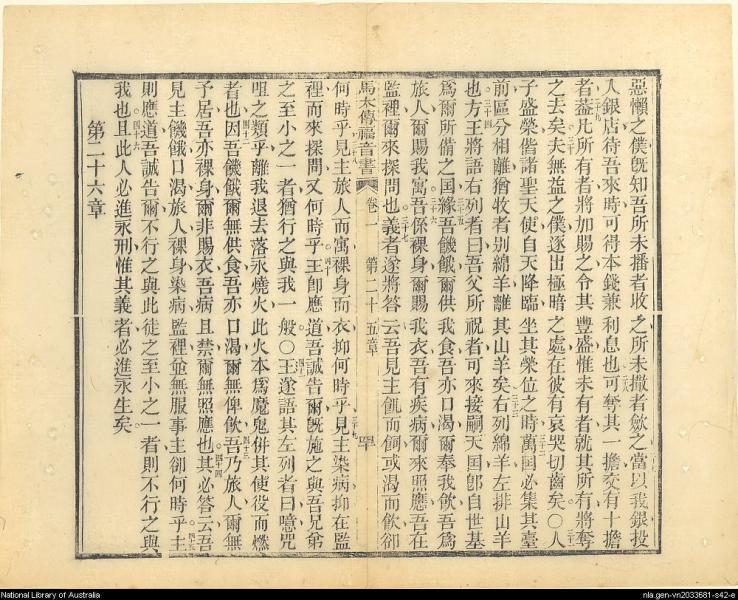 惡懶之僕旣知吾所未播者收之所未撒者斂之當以我銀投
人銀店待吾來時可得本錢兼利息也可奪其一擔交有十擔
者葢凡所有者將加賜之令其豐盛惟未有者就其所有將奪
之去矣夫無益之僕逐出極暗之處在彼有哀哭切齒矣〇人
子盛榮偕諸聖天使自天降臨坐其榮位之時萬囯必集其臺
前區分相離猶牧者别綿羊離其山羊矣右列綿羊左排山羊
也方王將語右列者曰吾父所祝者可來接嗣天囯卽自世基
爲爾所備之囯緣吾饑餓爾供我食吾亦口渴爾奉我飲吾爲
旅人爾賜我寓吾係裸身爾賜我衣吾有疾病爾來照應吾在
監裡爾來探問也義者遂將答云吾見主飢而飼或渴而飲卻
馬太傳福音書 卷一 第二十五章
何時乎見主旅人而寓裸身而衣抑何時乎見主染病抑在監
裡而來探問又何時乎王卽應道吾誠告爾旣施之與吾兄弟
之至小之一者猶行之與我一般〇王遂語其左列者曰噫咒
咀之類乎離我退去落永燒火此火本爲魔鬼併其使役而燃
者也因吾饑餓爾無供食吾亦口渴爾無俾飲吾乃旅人爾無
予居吾亦裸身爾非賜衣吾病且禁爾無照應也其必答云吾
見主饑餓口渴旅人裸身染病監裡並無服事主卻何時乎主
則應道吾誠告爾不行之與此徒之至小之一者則不行之與
我也且此人必進永刑惟其義者必進永生矣
第二十六章
National Library of Australia
nla.gen-vn2033681-s42-e